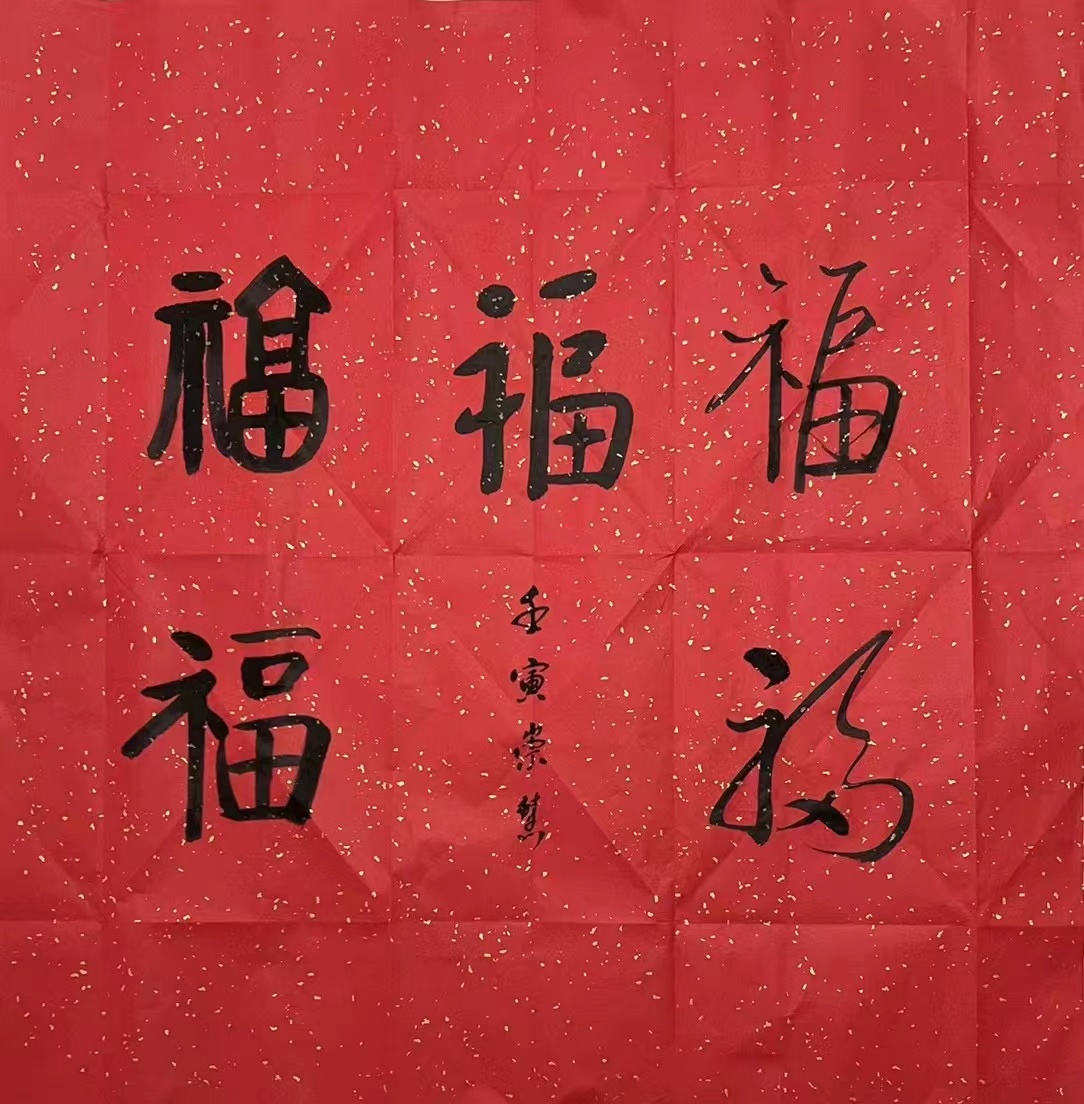 福福福
福福
壬寅崇慧